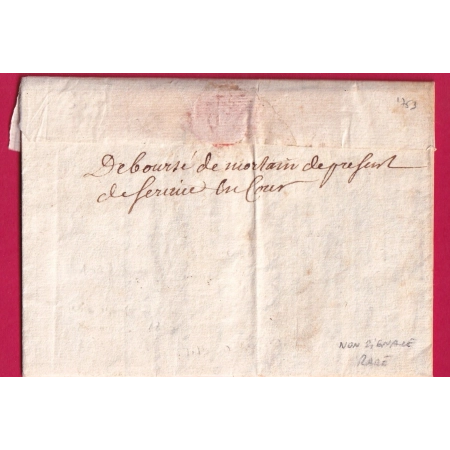 1753
Deboursé de mortain de present
de service en Cour
NON SIGNALÉ
RARE